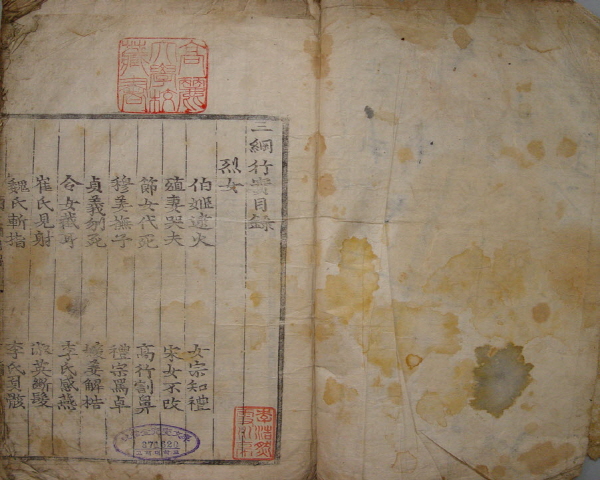 高麗
大學校
藏書
三綱行實目錄
烈女
伯姬逮火 女宗知禮
殖妻哭夫 宋女不改
節女代死 高行割鼻
穆姜撫子 禮宗罵卓
貞義刎死 媛姜解梏
令女截耳 李氏感燕
崔氏見射 淑英斷髮
魏氏斬指 李氏負骸